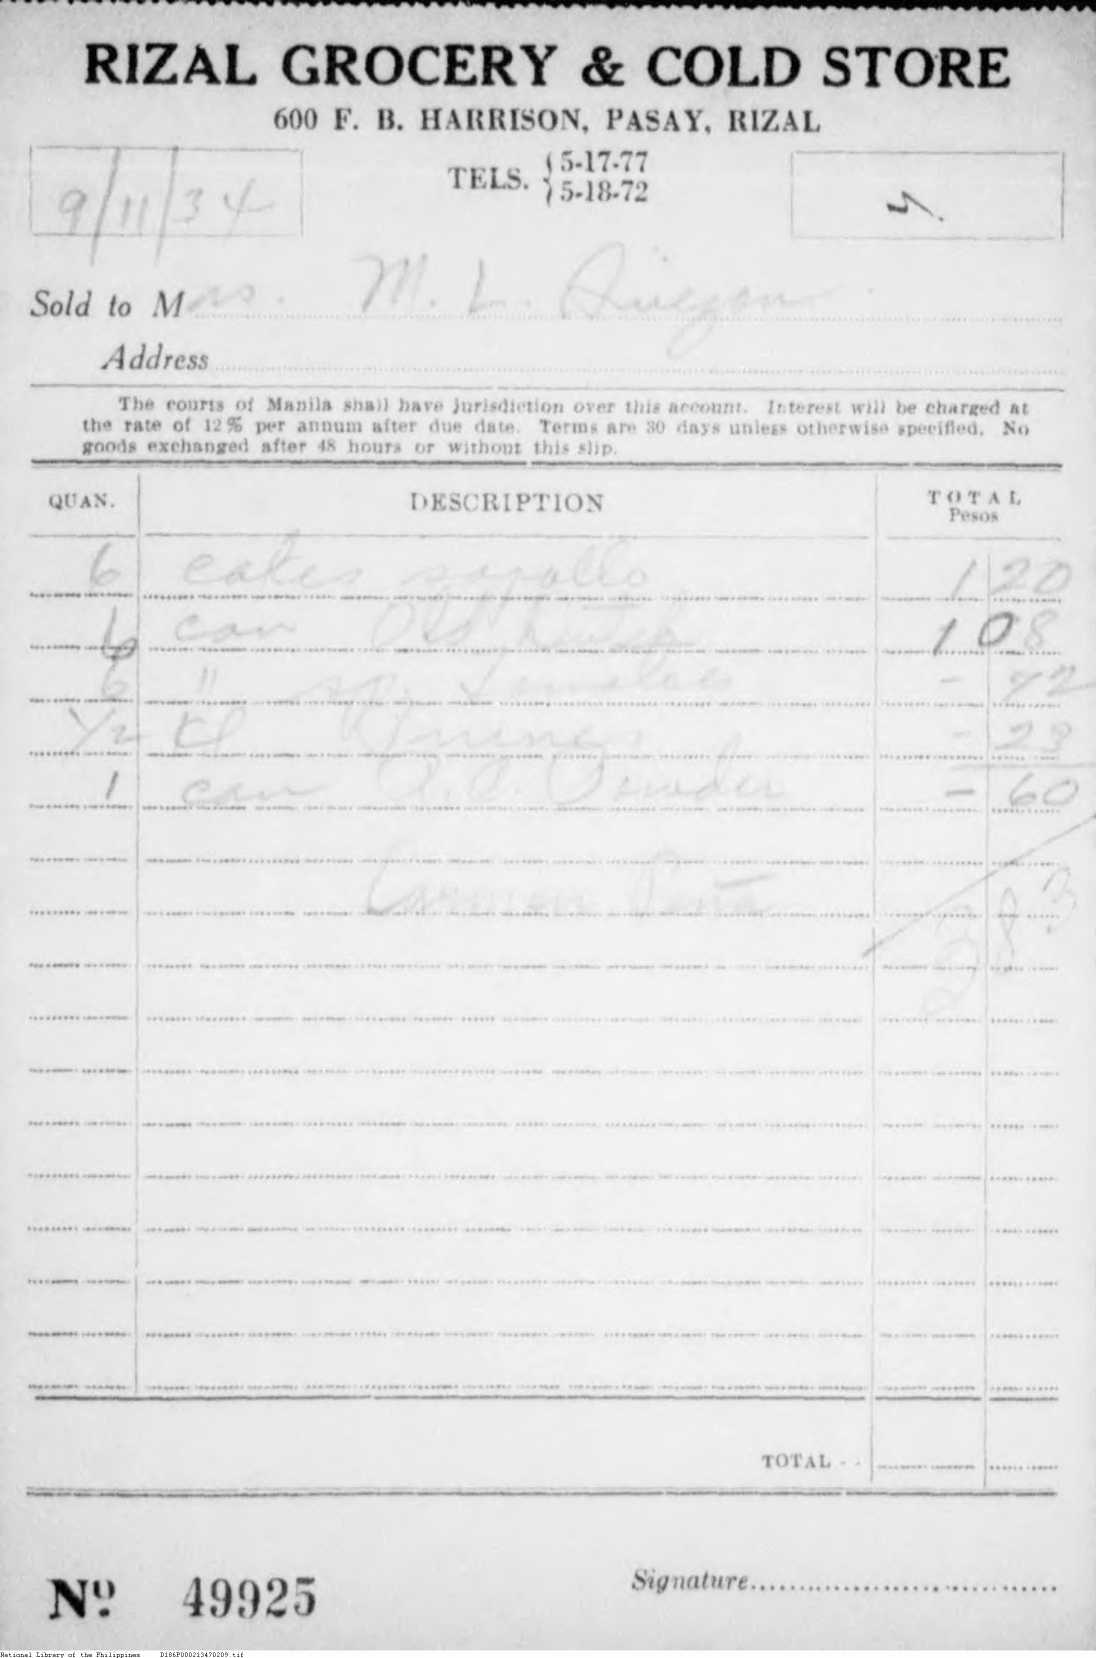 RIZAL GROCERY & COLD STORE
600 F. B. HARRISON, PASAY, RIZAL
TELS. 5-17-77
5-18-72
9/11/34
Sold to Mrs. M. L.
Address
The courts of Manila shall have jurisdiction over this account. Interest will be charged at
the rate of 12% per annum after due date. Terms are 30 days unless otherwise specified. No
goods exchanged after 48 hours or without this slip.
QUAN. DESCRIPTION TOTAL
Pesos
6 cakes sapolio 1 20
6 can Old Dutch 1 08
6 " - 72
1/2 Prunes - 23
1 can Powder - 60
Carmen Peña
3 83
TOTAL - -
Nº 49925
Signature
National Library of the Philippines D186P000213470209.tif